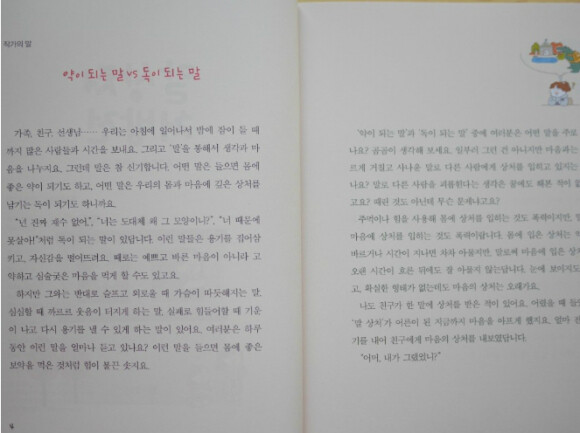 작가의 말
약이 되는 말 vs 독이 되는 말
가족, 친구, 선생님…… 우리는 아침에 일어나서 밤에 잠이 들 때
까지 많은 사람들과 시간을 보내요. 그리고 '말'을 통해서 생각과 마
음을 나누지요. 그런데 말은 참 신기합니다. 어떤 말은 들으면 몸에
좋은 약이 되기도 하고, 어떤 말은 우리의 몸과 마음에 깊은 상처를
남기는 독이 되기도 하니까요.
"넌 진짜 재수 없어.", "너는 도대체 왜 그 모양이니?", "너 때문에
못살아!"처럼 독이 되는 말이 있답니다. 이런 말들은 용기를 잃어버
리고, 자신감을 떨어뜨려요. 때로는 예쁘고 바른 마음이 아니라 고
약하고 심술궂은 마음을 먹게 할 수도 있고요.
하지만 그와는 반대로 슬프고 외로울 때 가슴이 따듯해지는 말,
심심할 때 까르르 웃음이 터지게 하는 말, 실패로 힘들어할 때 기운
이 나고 다시 용기를 낼 수 있게 하는 말이 있어요. 여러분은 하루
동안 어떤 말을 얼마나 듣고 있나요? 이런 말을 들으면 몸에 좋은
보약을 먹은 것처럼 힘이 불끈 솟지요.
4
'약이 되는 말'과 '독이 되는 말' 중에 여러분은 어떤 말을 주로
나요? 곰곰이 생각해 보세요. 일부러 그런 건 아니지만 마음과는
르게 거칠고 사나운 말로 다른 사람에게 상처를 입히고 있지는
나요? 말로 다른 사람을 괴롭힌다는 생각은 꿈에도 해본 적이 없
고요? 때린 것도 아닌데 무슨 문제냐고요?
주먹이나 힘을 사용해 몸에 상처를 입히는 것도 폭력이지만,
마음에 상처를 입히는 것도 폭력이랍니다. 몸에 입은 상처는
바르거나 시간이 지나면 차차 아물지만, 말로써 마음에 입은 상
오랜 시간이 흐른 뒤에도 잘 아물지 않는답니다. 눈에 보이지도
고, 확실한 형태가 없는데도 마음의 상처는 오래가요.
나도 친구가 한 말에 상처를 받은 적이 있어요. 어렸을 때 들
'말 상처'가 어른이 된 지금까지 마음을 아프게 했지요. 얼마 전
기를 내어 친구에게 마음의 상처를 내보였답니다.
"어머, 내가 그랬었니?"